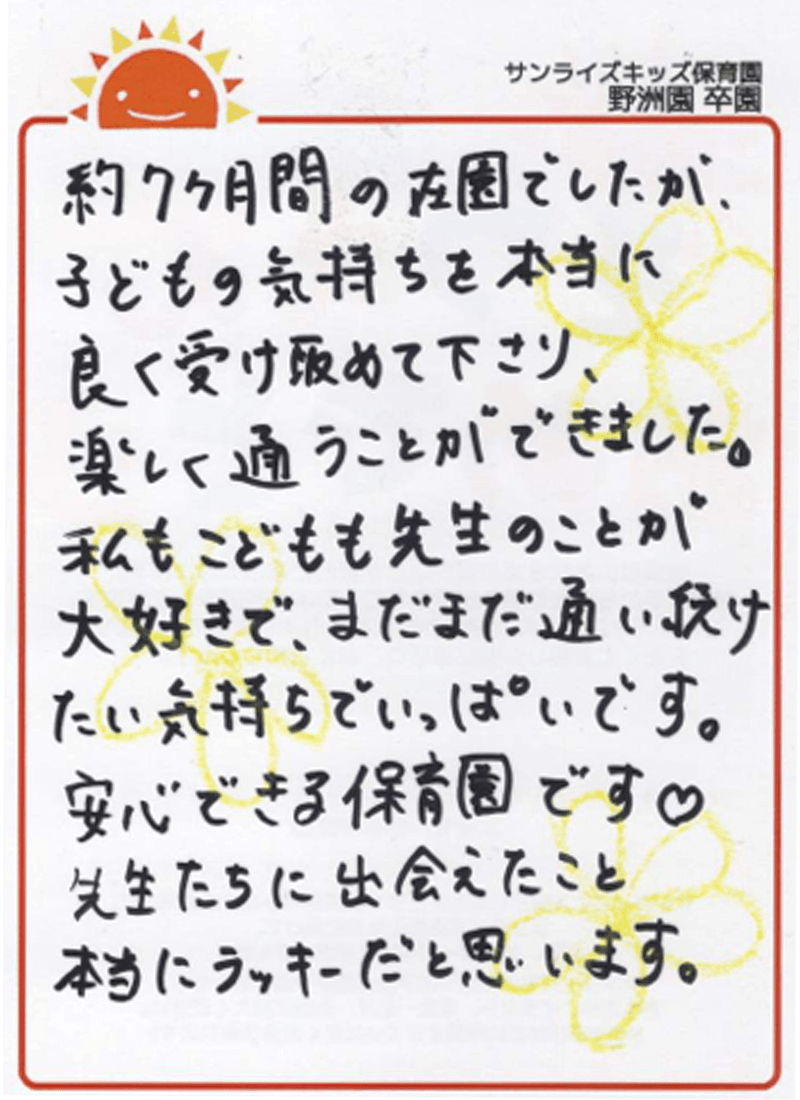 サンライズキッズ保育園
野洲園 卒園
約7ヶ月間の在園でしたが、
子どもの気持ちを本当に
良く受け取めて下さり、
楽しく通うことができました。
私もこどもも先生のことが
大好きで、まだまだ通い続け
たい気持ちでいっぱいです。
安心できる保育園です♡
先生たちに出会えたこと
本当にラッキーだと思います。